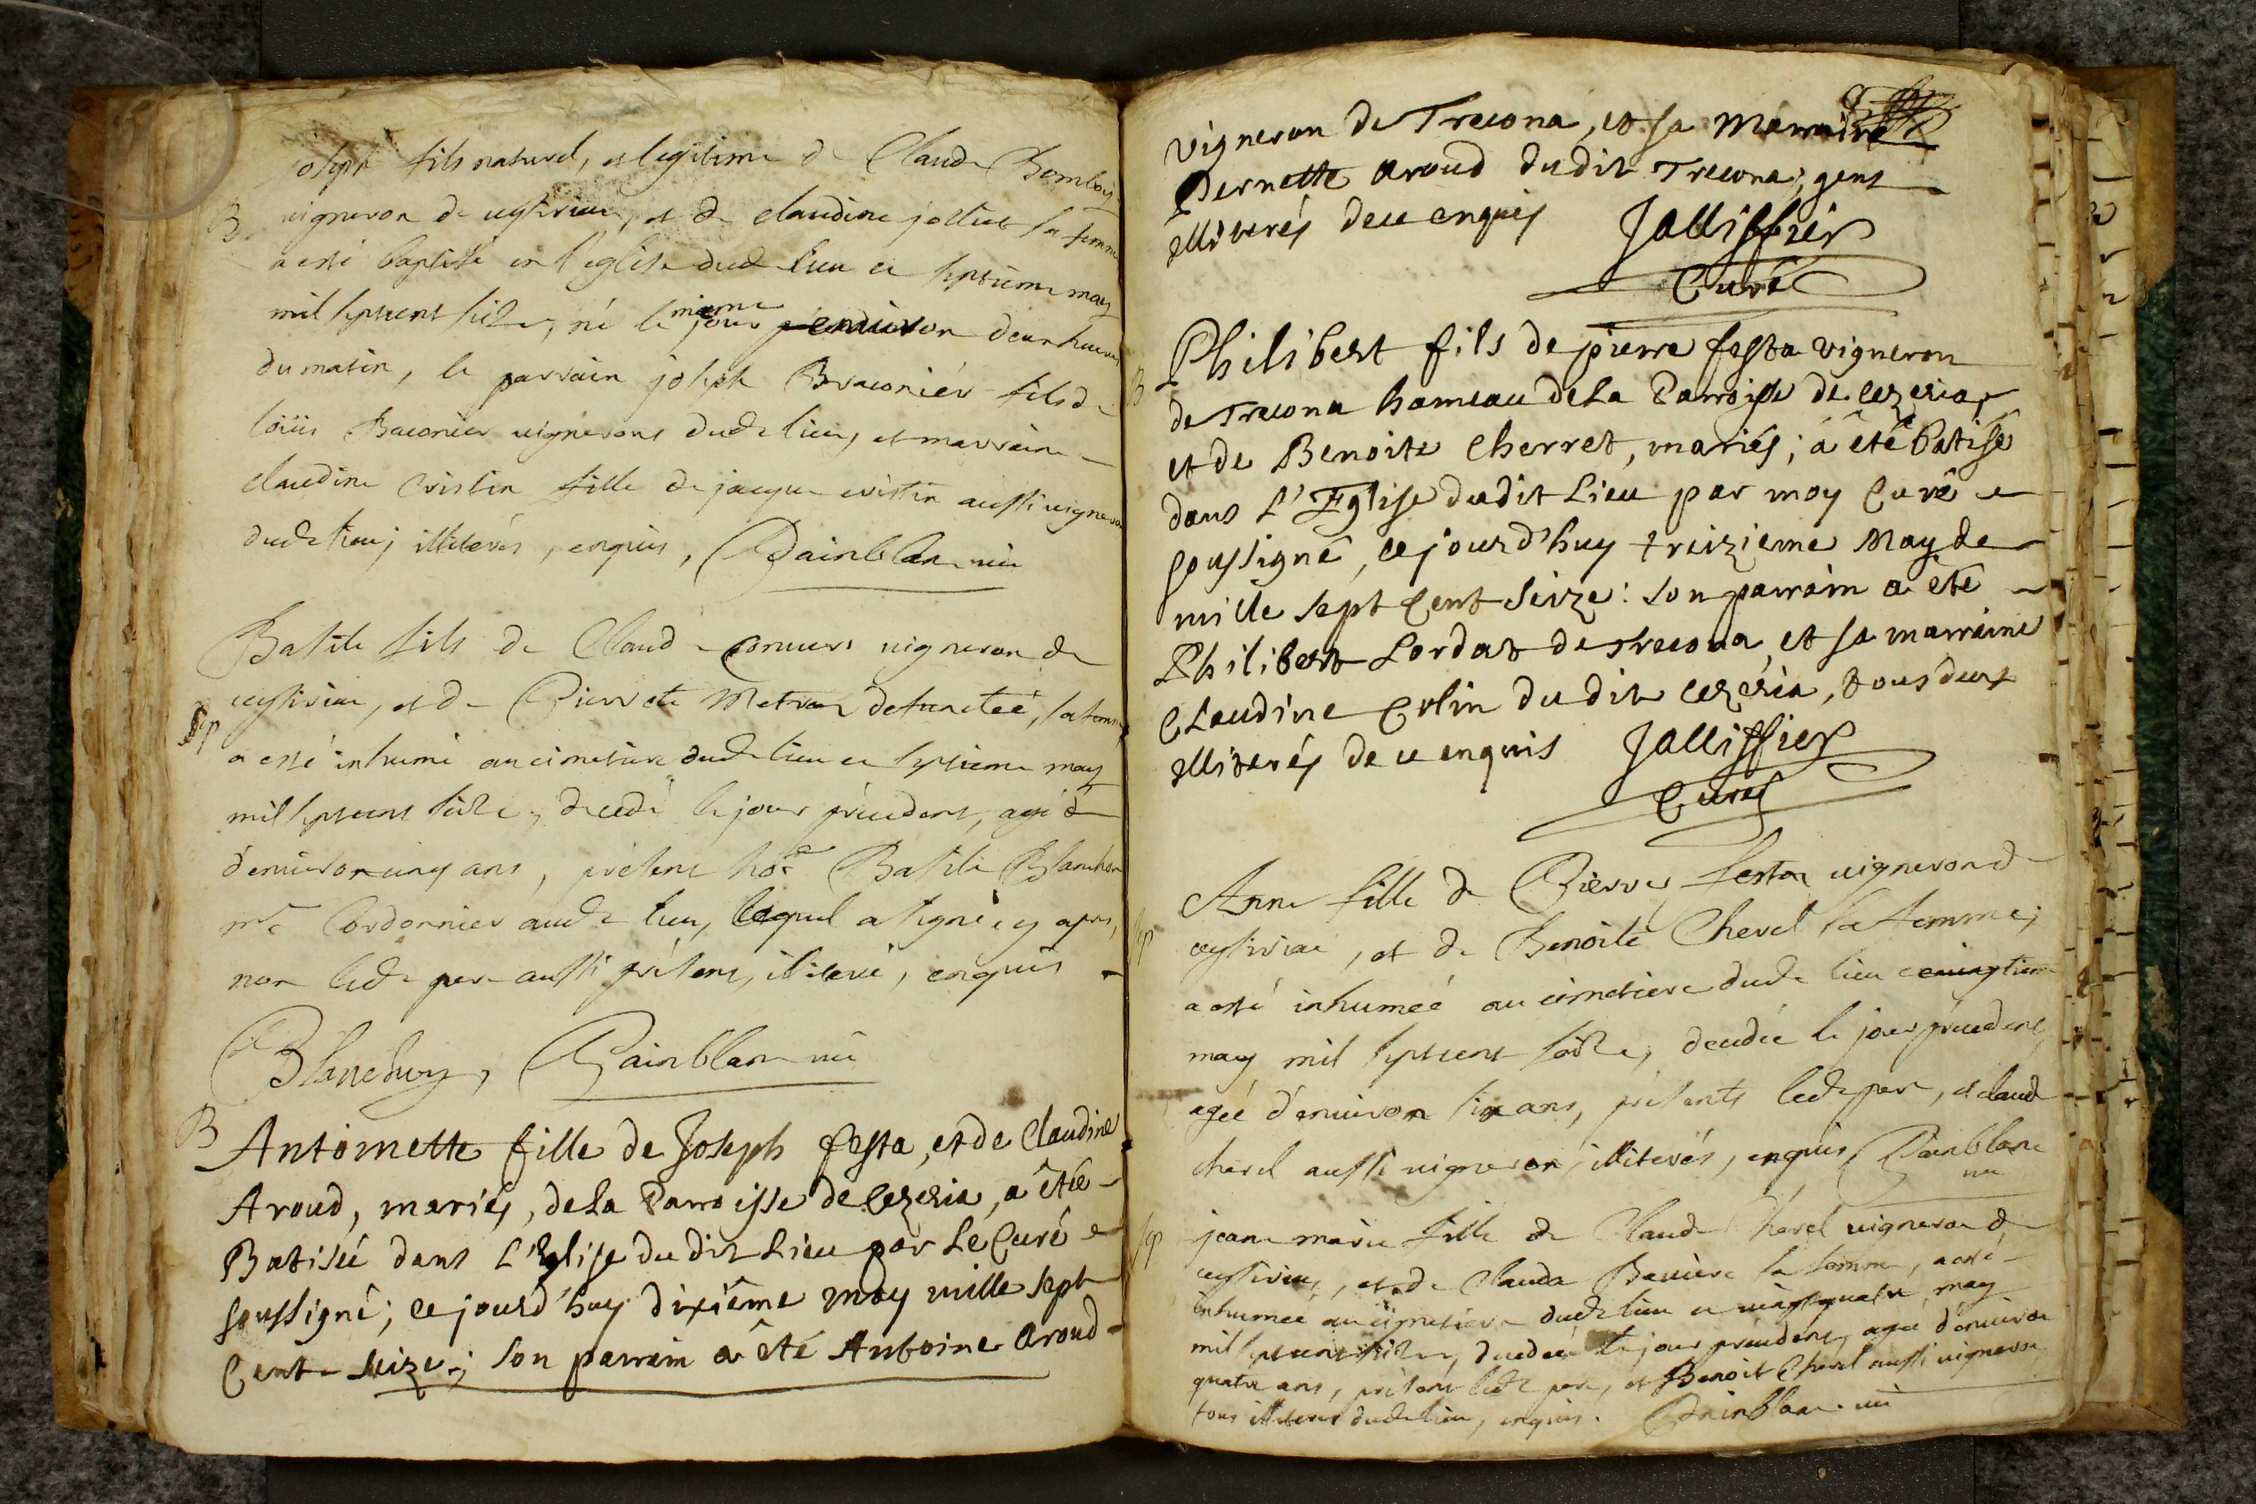 joseph fils naturel, et legitime de Claude Bombois
B. vigneron de ceyseriac, et de claudine jolliet sa femme
a esté baptisé en l'eglise dud. lieu ce septieme may
mil septcent seize, né le mesme jour environ deux heures
du matin, le parrain joseph Braconier fils de
loüis Braconier vignerons dud. lieu, et marraine
claudine cristin fille de jacque cristin aussi vigneron
dud. lieu, illiterés, enquis, Painblanc
Basile fils de Claude vigneron de
ceyseriac, et de Pierrete defunctée, sa femme
Sep a esté inhumé au cimetiere dud. lieu ce septieme may
mil septcent seize, decedé le jour précedent, agé
d'environ cinq ans, présent Basile
Cordonnier aud. lieu, lequel a signé cy apres,
non led. pere aussi présent, illiteré, enquis
Painblanc
B Antoinette fille de Joseph festa, et de Claudine
Aroud, mariés, de la Parroisse de Cezeria, a été
Batisée dans L'Eglise du dit Lieu par Le Curé
soussigné; ce jourd'huy dixiême may mille sept
Cent seize; son parrain a été Antoine Aroud
vigneron de Trecona, et sa Marraine
Pernette Aroud du dit Trecona, gens
illiterés de ce enquis Jallissier
Curé
B Philibert fils de pierre festa vigneron
de Trecona hameau de La Parroisse de Cezeria,
et de Benoite Cherret, mariés; a été batisé
dans L'Eglise du dit Lieu par moy Curé
soussigné, ce jourd'huy treizieme May de
mille sept Cent seize: son parrain a été
Philibert Lordat de Trecona, et sa marraine
Claudine Colin du dit Cezeria, tous deux
illiterés de ce enquis Jallissier
Curé
Anne fille de Pierre festa vigneron de
Sep ceyseriac, et de Benoite Cherel sa femme,
a esté inhumée au cimetiere dud. lieu ce vingtieme
may mil septcent seize, decedée le jour précedent,
agée d'environ six ans, présents led. pere, et claude
cherel aussi vigneron, illiterés, enquis Painblanc
Sep jeane marie fille de Claude cherel vigneron de
ceyseriac, et de Clauda sa femme, a esté
inhumée au cimetiere dud. lieu ce vingtquatre may
mil septcent seize, decedée le jour précedent, agée d'environ
quatre ans, présent led. pere, et Benoit Cherel aussi vigneron
tous illiterés dud. lieu, enquis. Painblanc